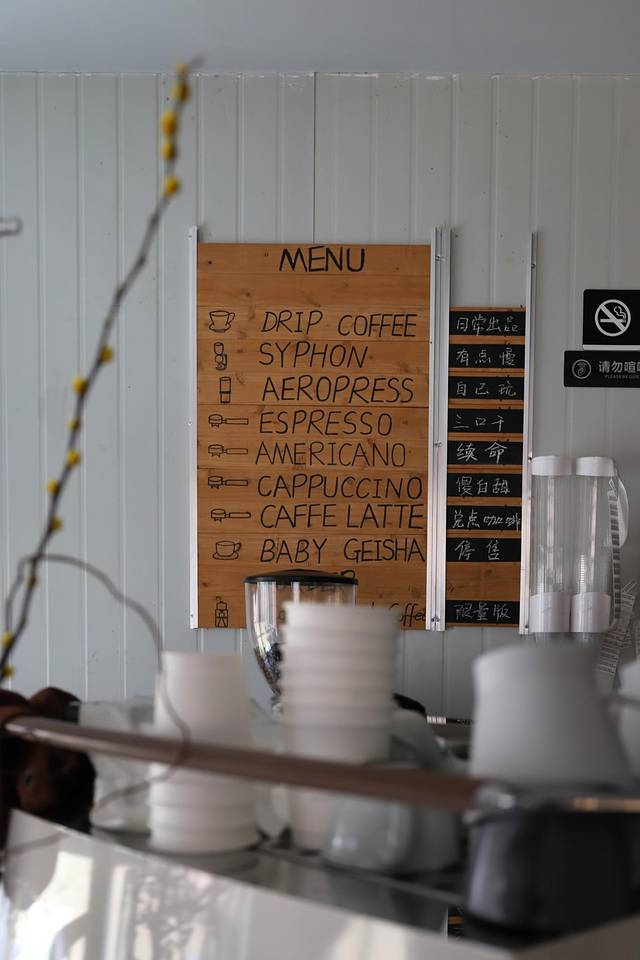 MENU
DRIP COFFEE
SYPHON
AEROPRESS
ESPRESSO
AMERICANO
CAPPUCCINO
CAFFE LATTE
BABY GEISHA
Coffee
日常出品
有点慢
自己玩
三口干
续命
傻白甜
兑点咖啡
停售
限量版
请勿喧